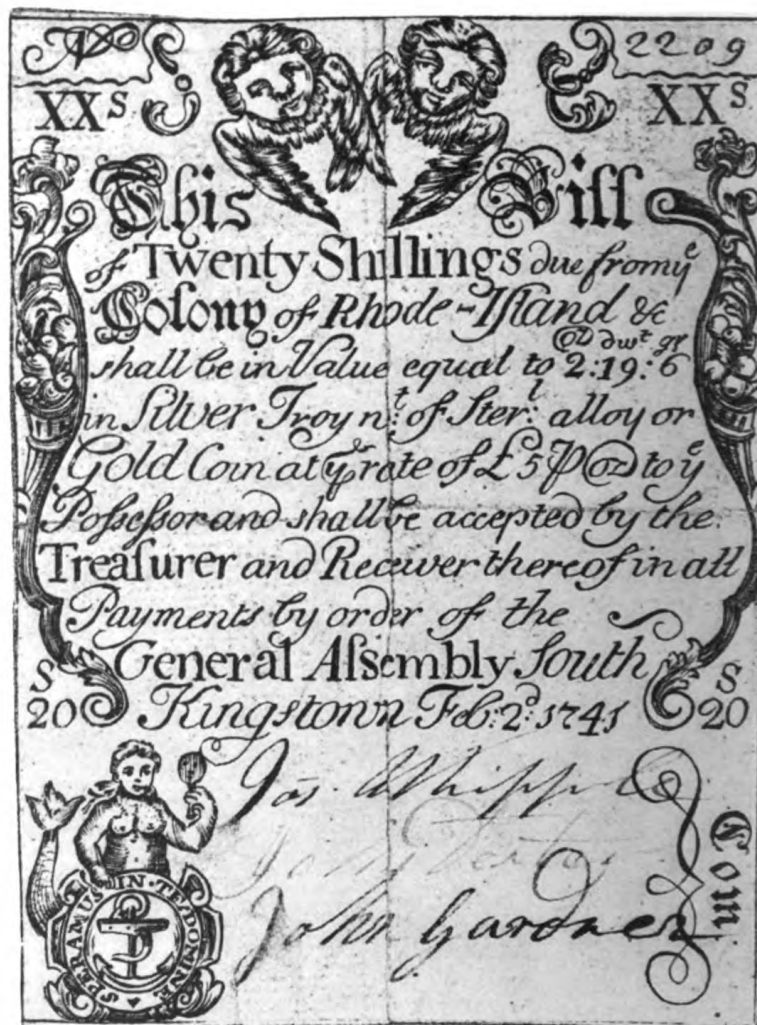 No 2209
XXS XXS
This Bill
of Twenty Shillings due from ye
Colony of Rhode-Island &c
oz dwt gr
shall be in Value equal to 2:19:6
in Silver Troy nt. of Sterl. alloy or
Gold Coin at ye rate of £5 ℔ oz to ye
Possessor and shall be accepted by the
Treasurer and Receiver thereof in all
Payments by order of the
General Assembly South
S Kingstown Feb: 2d. 1741 S
20 20
Jos. Whipple
John Gardner
Com
SPERAMUS IN TE DOMINE